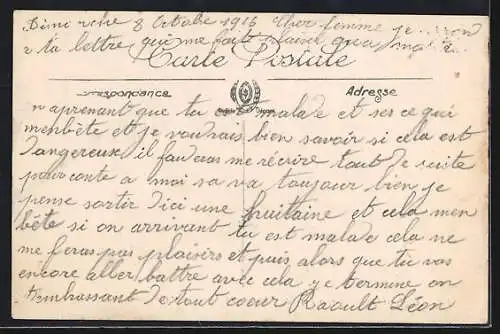 Dimenche 8 Octobre 1916 Cher femme je
a ta lettre qui me fait plaisir quan moi
Carte Postale
respondance Adresse
n aprenant que tu est malade et ses ce qui
menbête et je voudrais bien savoir si cela est
dangereux il faudras me récrire tout de suite
pour conte a moi sa va toujour bien je
pense sortir d'ici une huitaine et cela men
bête si on arrivant tu est malade cela ne
me feras pas plaisirs et puis alors que tu vas
encore aller battre avec cela je termine en
t'embrassant de tout coeur Raoult Léon